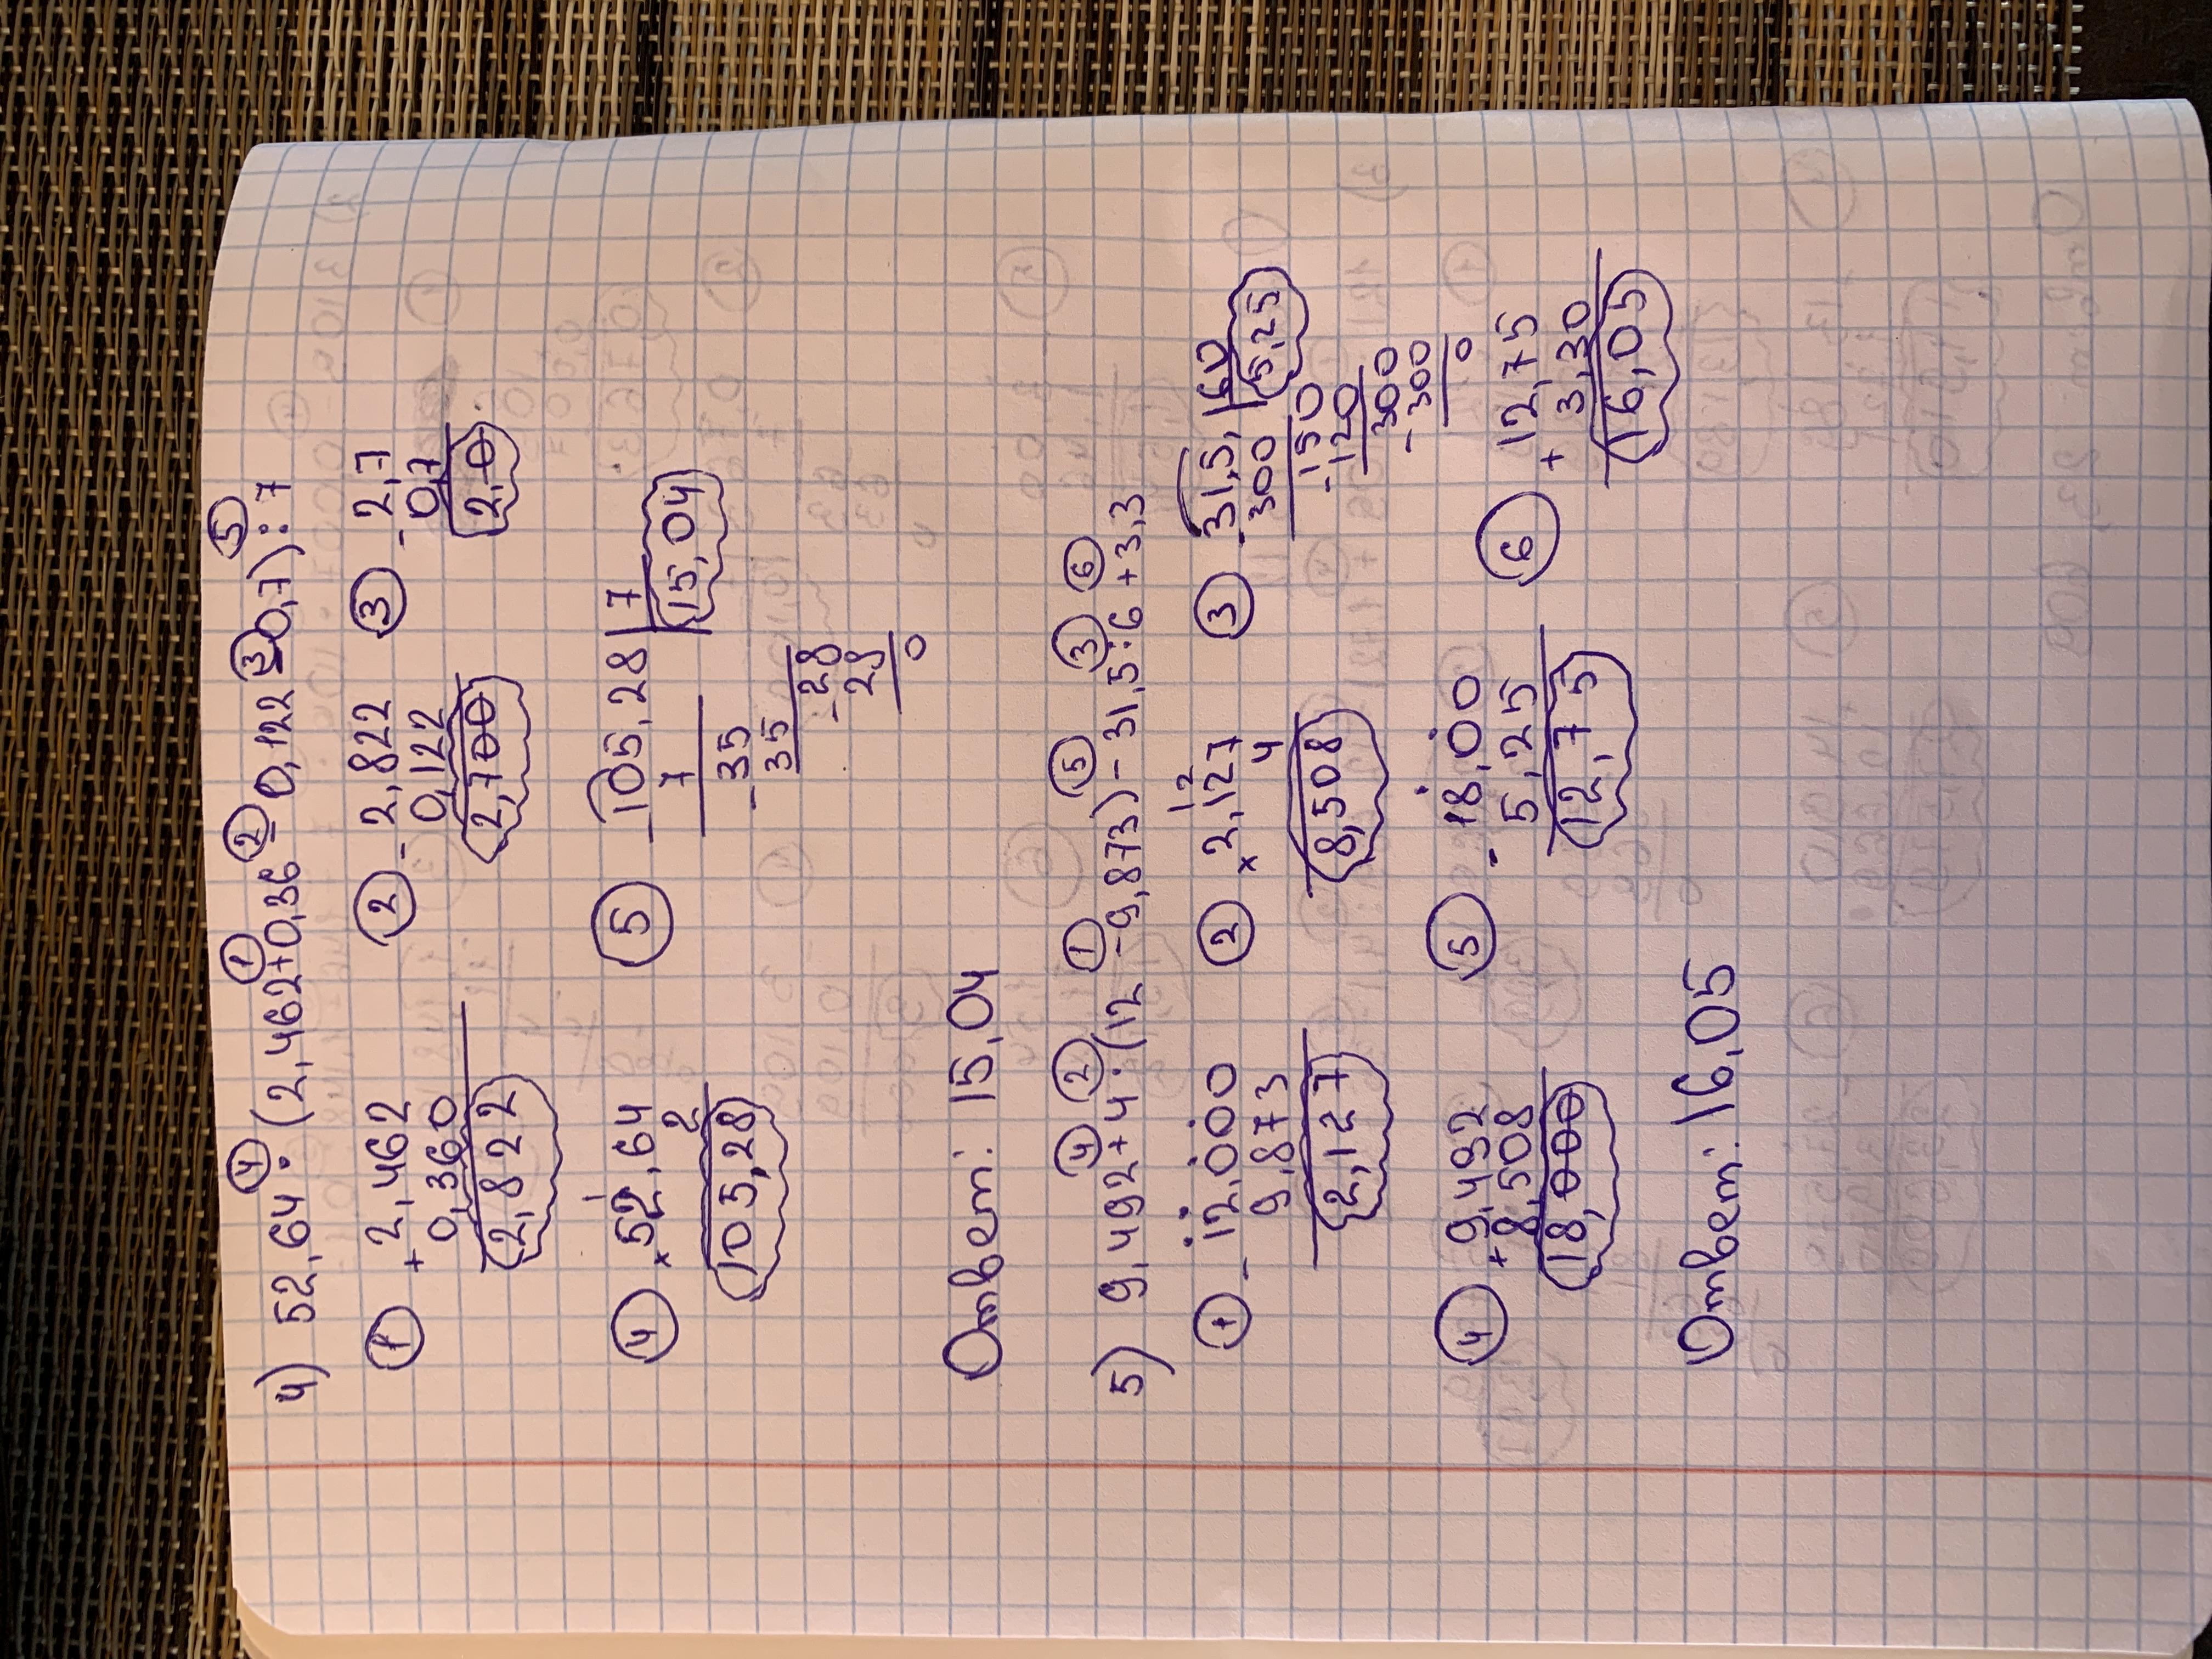 4) 52,64 · (2,462+0,36-0,122-0,7):7
④ ① ② ③ ⑤
① + 2,462
0,360
2,822
② - 2,822
0,122
2,700
③ - 2,7
0,7
2,0
④ × 52,64
2
105,28
⑤ - 105,28 | 7
7 15,04
- 35
35
- 28
28
0
Ответ: 15,04
5) 9,492+4·(12-9,873)-31,5:6+3,3
④ ② ① ⑤ ③ ⑥
① - 12,000
9,873
2,127
② × 2,127
4
8,508
③ - 31,5, | 60
300 5,25
- 150
- 120
300
- 300
0
④ + 9,492
8,508
18,000
⑤ - 18,00
5,25
12,75
⑥ + 12,75
3,30
16,05
Ответ: 16,05